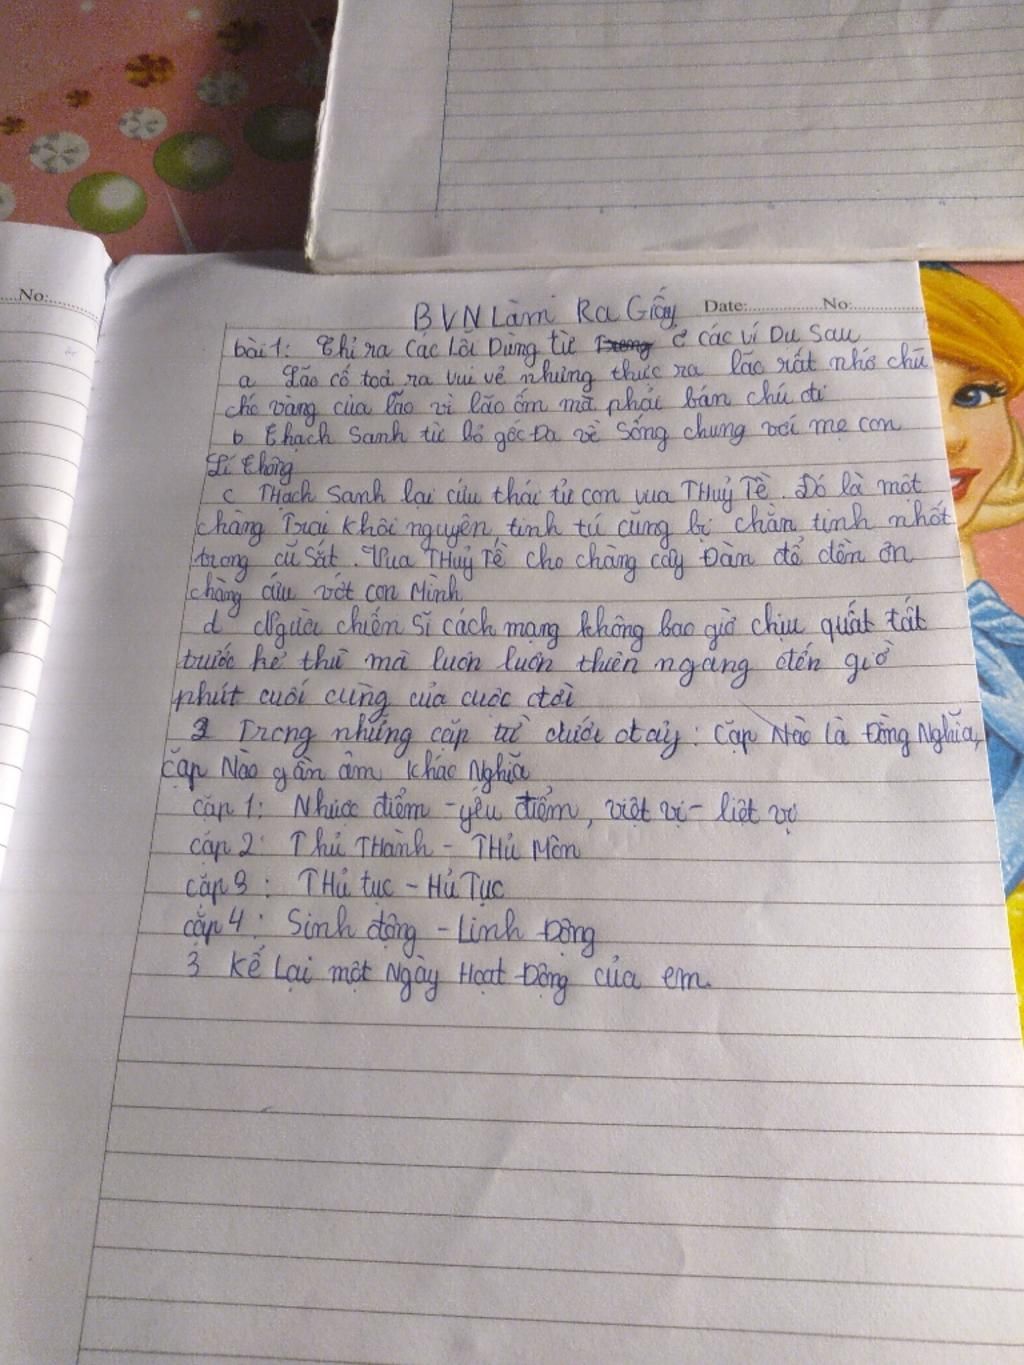 No:
BVN Làm Ra Giấy Date: No:
bài 1: Chỉ ra Các Lỗi Dùng từ Trong ở các ví Dụ Sau
a Lão cố toả ra vui vẻ nhưng thực ra lão rất nhớ chú
chó vàng của lão vì lão ốm mà phải bán chú đi
b Thạch Sanh từ bỏ gốc Đa về Sống chung với mẹ con
Lí Thông
c THạch Sanh lại cứu thái tử con vua THuỷ Tề. Đó là một
chàng Trai khôi nguyên, tinh tú cũng bị chằn tinh nhốt
trong cũ Sắt. Vua THuỷ Tề cho chàng cây Đàn để đền ơn
chàng cứu vớt con Mình
d Người chiến Sĩ cách mạng không bao giờ chịu quất tất
trước kẻ thù mà luôn luôn thiên ngang đến giờ
phút cuối cùng của cuộc đời
2 Trong những cặp từ dưới đây: Cặp Nào là Đồng Nghĩa,
Cặp Nào gần âm khác Nghĩa
cặp 1: Nhược điểm - yếu điểm, việt vị - liệt vị
cặp 2: Thủ THành - THủ Môn
cặp 3: THủ tục - Hủ Tục
cặp 4: Sinh động - Linh Động
3 Kể Lại một Ngày Hoạt Động của em.